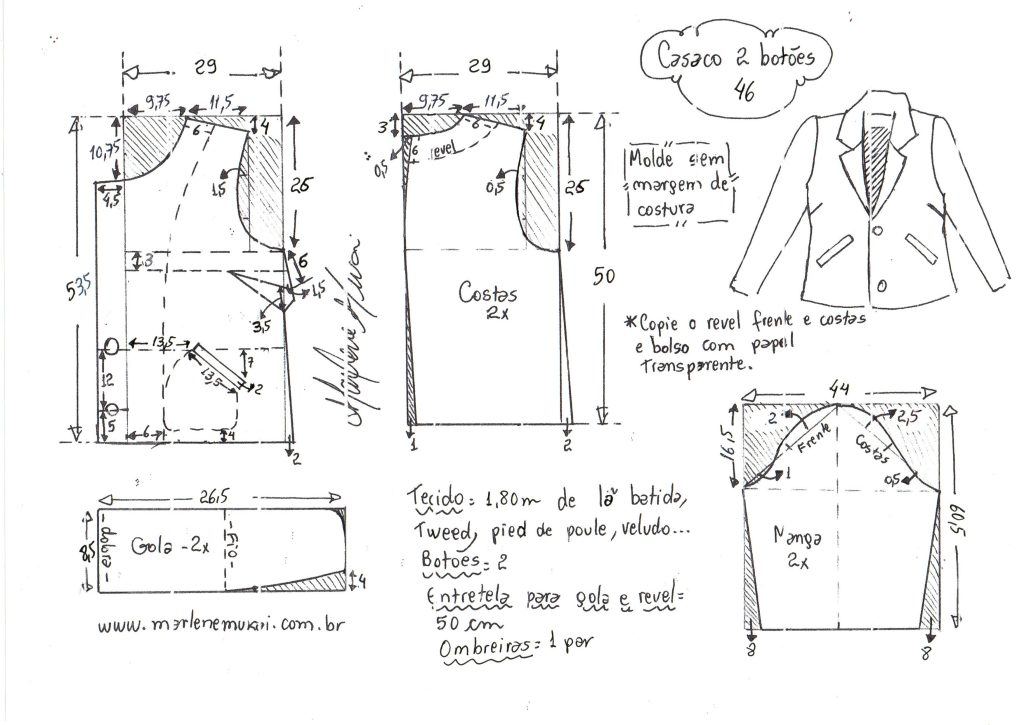 Casaco 2 botões
46
29
9,75
11,5
6
4
10,75
4,5
1,5
25
3
6
1,5
3,5
53,5
13,5
13,5
7
2
12
5
6
4
2
29
9,75
11,5
3
6
revel
0,5
4
0,5
25
50
Costas
2x
1
2
Molde sem
margem de
costura
*Copie o revel frente e costas
e bolso com papel
Transparente.
44
16,5
2
2,5
Frente
Costas
1
0,5
60,5
Manga
2x
8
8
26,5
8,5
dobra
Gola - 2x
fio
4
www.marlenemukai.com.br
Tecido = 1,80m de lã batida,
Tweed, pied de poule, veludo...
Botões = 2
Entretela para gola e revel =
50 cm
Ombreiras = 1 par